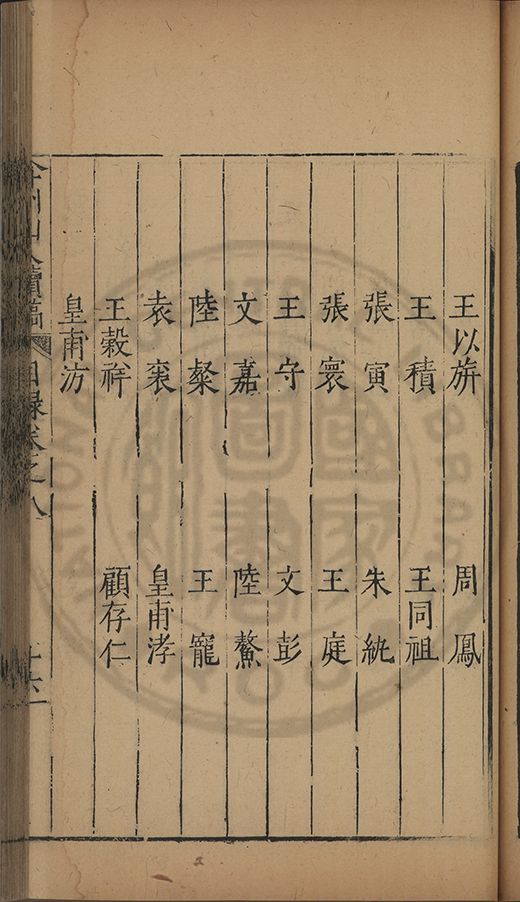 王以旂 周鳳
王積 王同祖
張寅 朱紈
張寰 王庭
王守 文彭
文嘉 陸鰲
陸粲 王寵
袁袠 皇甫涍
王穀祥 顧存仁
皇甫汸
續稿 目録卷之八